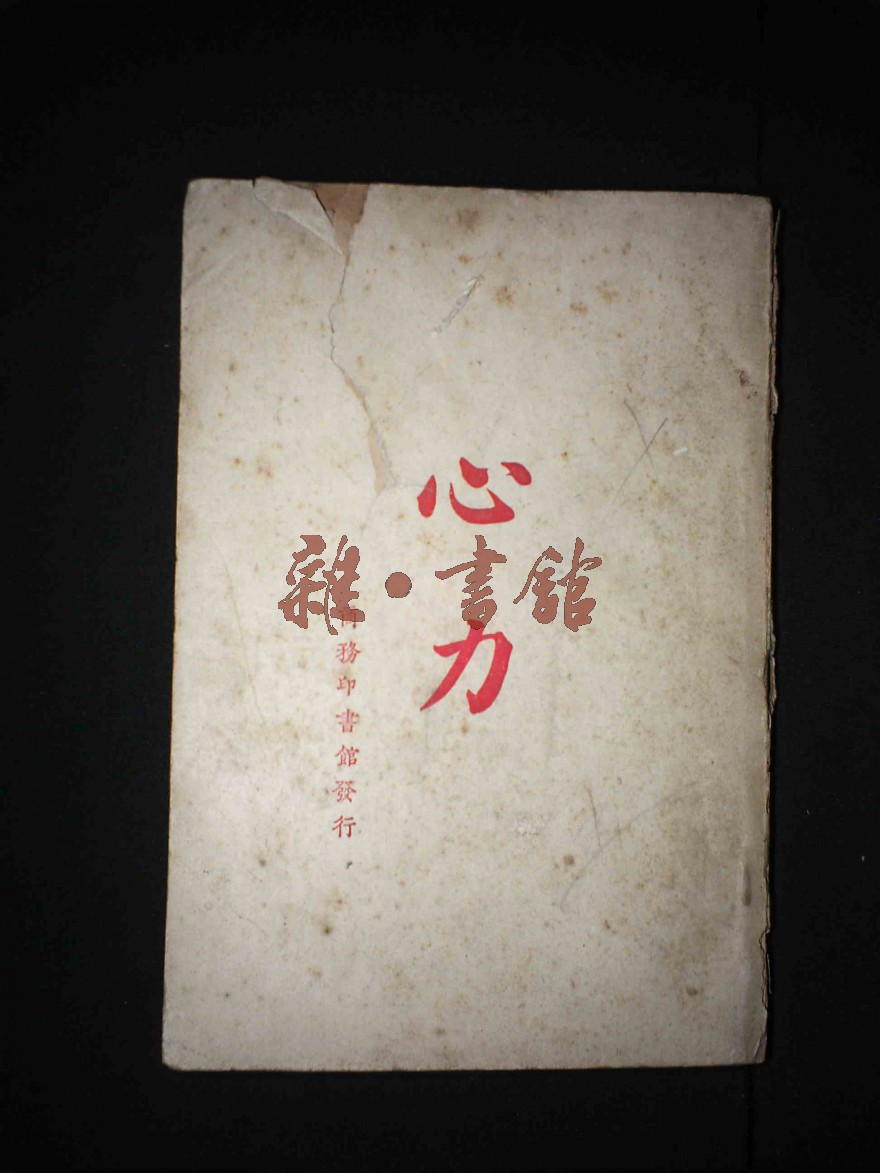 心力
雜·書館
商務印書館發行